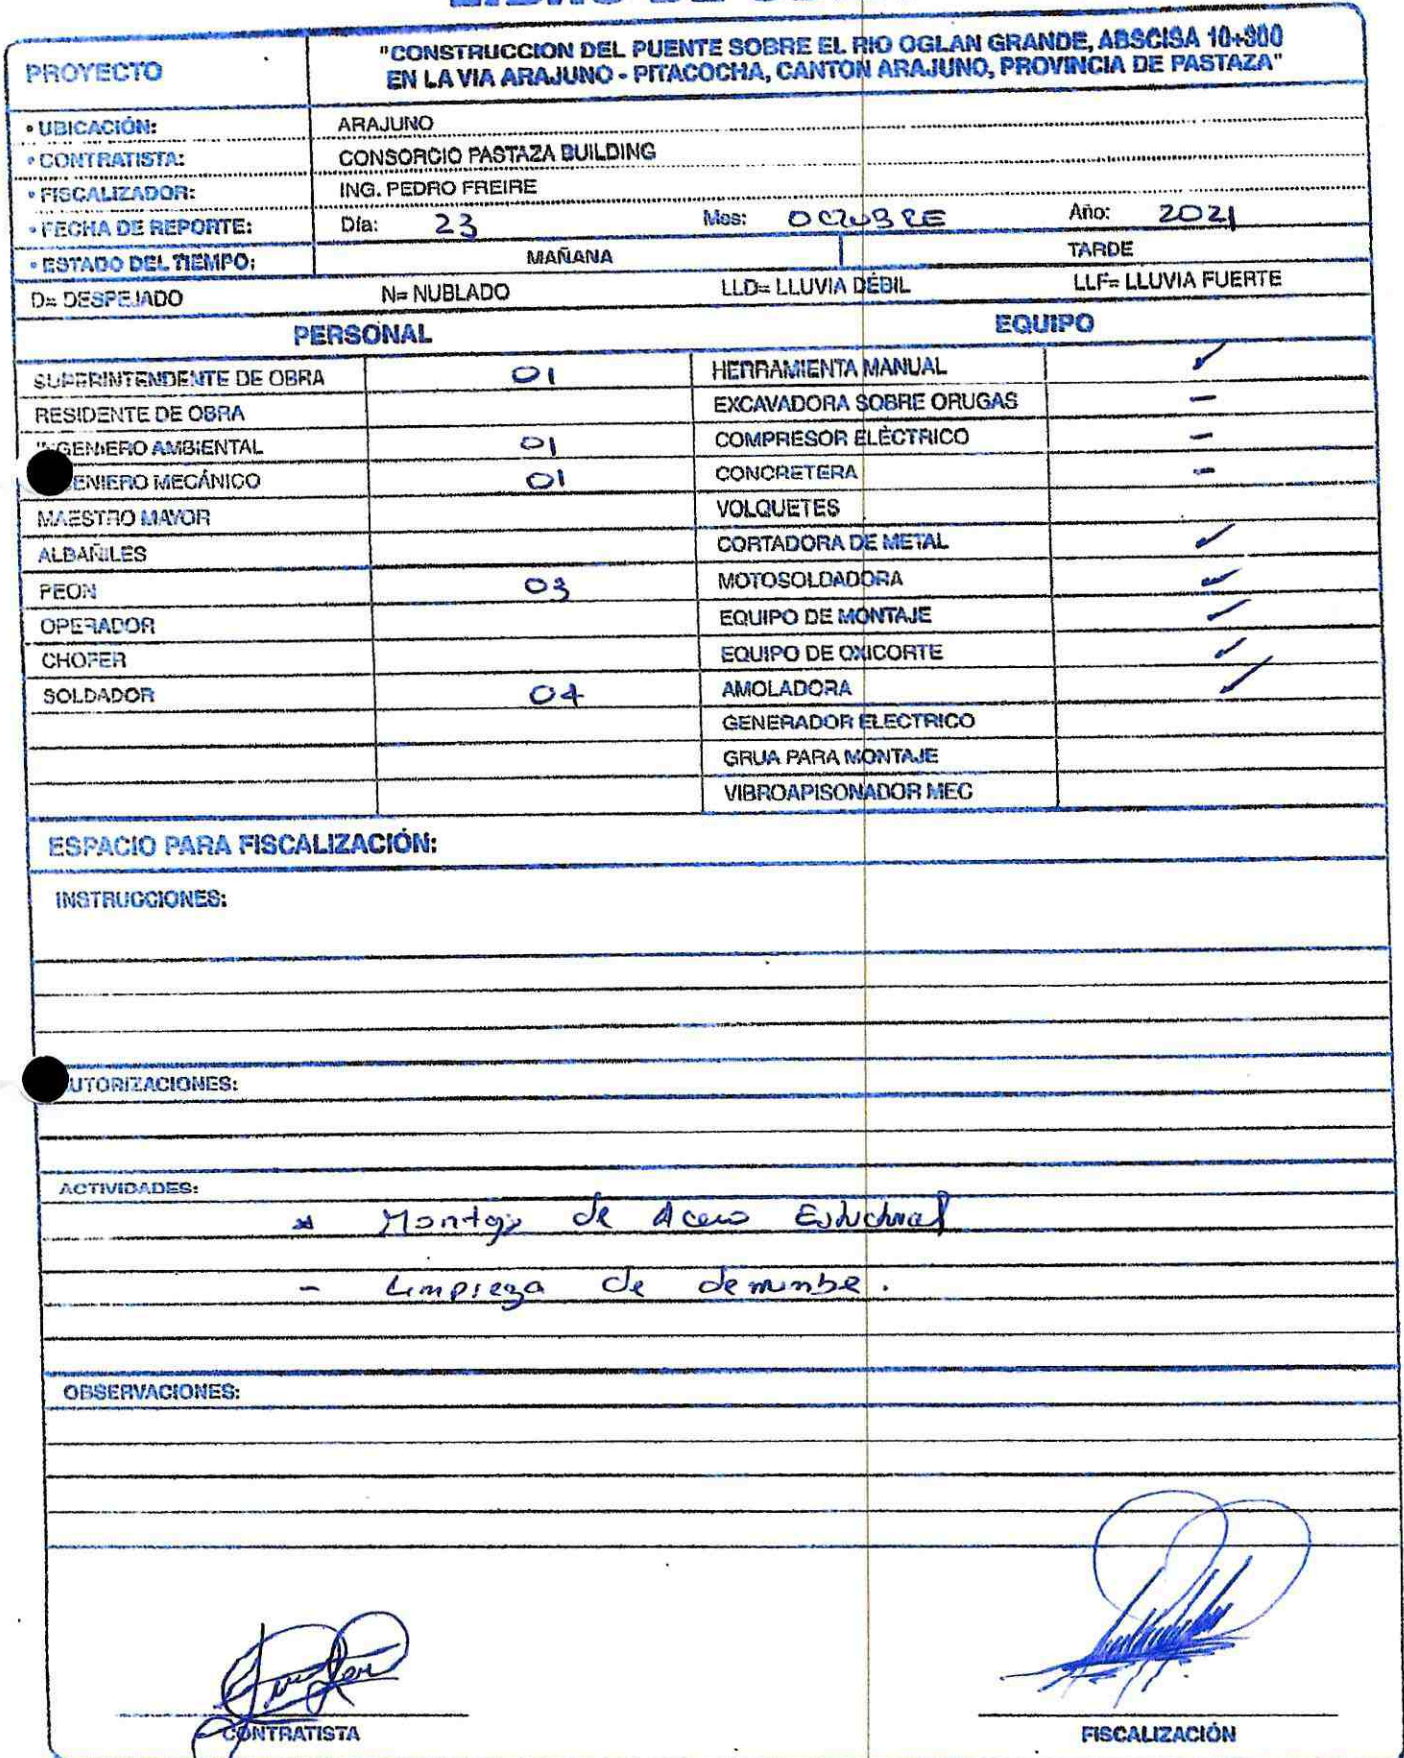 PROYECTO
"CONSTRUCCION DEL PUENTE SOBRE EL RIO OGLAN GRANDE, ABSCISA 10+300
EN LA VIA ARAJUNO - PITACOCHA, CANTON ARAJUNO, PROVINCIA DE PASTAZA"
• UBICACIÓN: ARAJUNO
• CONTRATISTA: CONSORCIO PASTAZA BUILDING
• FISCALIZADOR: ING. PEDRO FREIRE
• FECHA DE REPORTE: Día: 23 Mes: OCTUBRE Año: 2021
• ESTADO DEL TIEMPO: MAÑANA TARDE
D= DESPEJADO N= NUBLADO LLD= LLUVIA DÉBIL LLF= LLUVIA FUERTE
PERSONAL EQUIPO
SUPERINTENDENTE DE OBRA 01 HERRAMIENTA MANUAL ✓
RESIDENTE DE OBRA EXCAVADORA SOBRE ORUGAS –
INGENIERO AMBIENTAL 01 COMPRESOR ELÉCTRICO –
ENIERO MECÁNICO 01 CONCRETERA –
MAESTRO MAYOR VOLQUETES
ALBAÑILES CORTADORA DE METAL ✓
PEON 03 MOTOSOLDADORA ✓
OPERADOR EQUIPO DE MONTAJE ✓
CHOFER EQUIPO DE OXICORTE ✓
SOLDADOR 04 AMOLADORA ✓
GENERADOR ELECTRICO
GRUA PARA MONTAJE
VIBROAPISONADOR MEC
ESPACIO PARA FISCALIZACIÓN:
INSTRUCCIONES:
UTORIZACIONES:
ACTIVIDADES:
* Montaje de Acero Estructural
- Limpieza de derrumbe.
OBSERVACIONES:
CONTRATISTA FISCALIZACIÓN